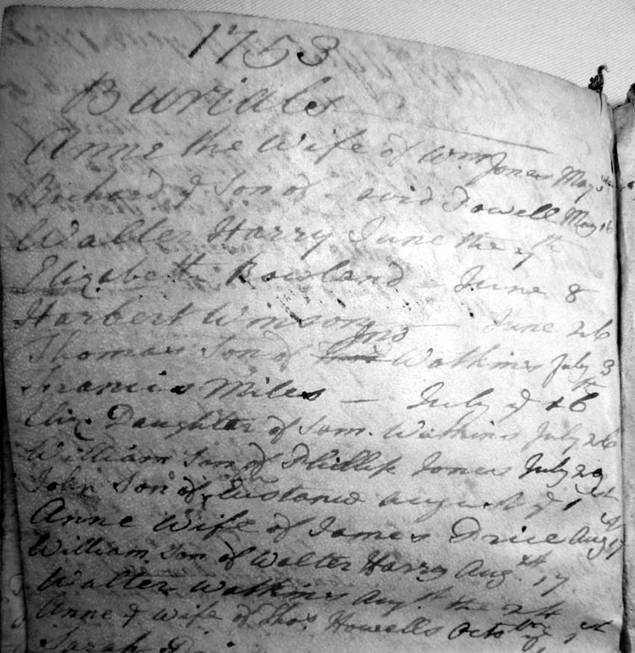 1753
Burials
Anne the Wife of Wm Jones May
Richard ye Son of David Powell May 16
Walter Harry June the 7th
Elizabeth Rowland - June 8
Harbert Winson - June 26
Thomas Son of Jno Watkins July 3
Francis Miles - July ye 16th
Eliz. Daughter of Sam. Watkins July 26
William Son of Phillip Jones July 29
John Son of August ye 1st
Anne Wife of James Price Aug 17
William Son of Walter Harry Augst 17
Walter Watkins Augst the 21st
Anne ye Wife of Thos Howells Octobr ye 1st
Sarah